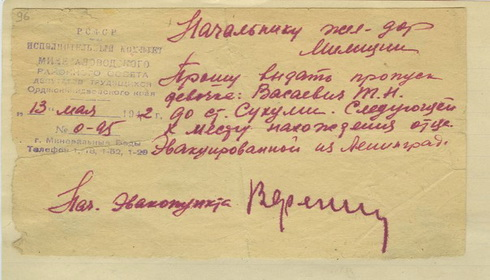 96
РСФСР
ИСПОЛНИТЕЛЬНЫЙ КОМИТЕТ
МИНЕРАЛОВОДСКОГО
РАЙОННОГО СОВЕТА
депутатов трудящихся
Орджоникидзевского края
„13" мая 1942
№ 0-95
г. Минеральные Воды
Телефон 1-52, 1-29
Начальнику жел-дор
Милиции
Прошу выдать пропуск
девочке: Васаевич Т.Н.
до ст. Сухуми. Следующей
к месту нахождения отца
Эвакуированной из Ленинград.
Нач. Эвакопункта